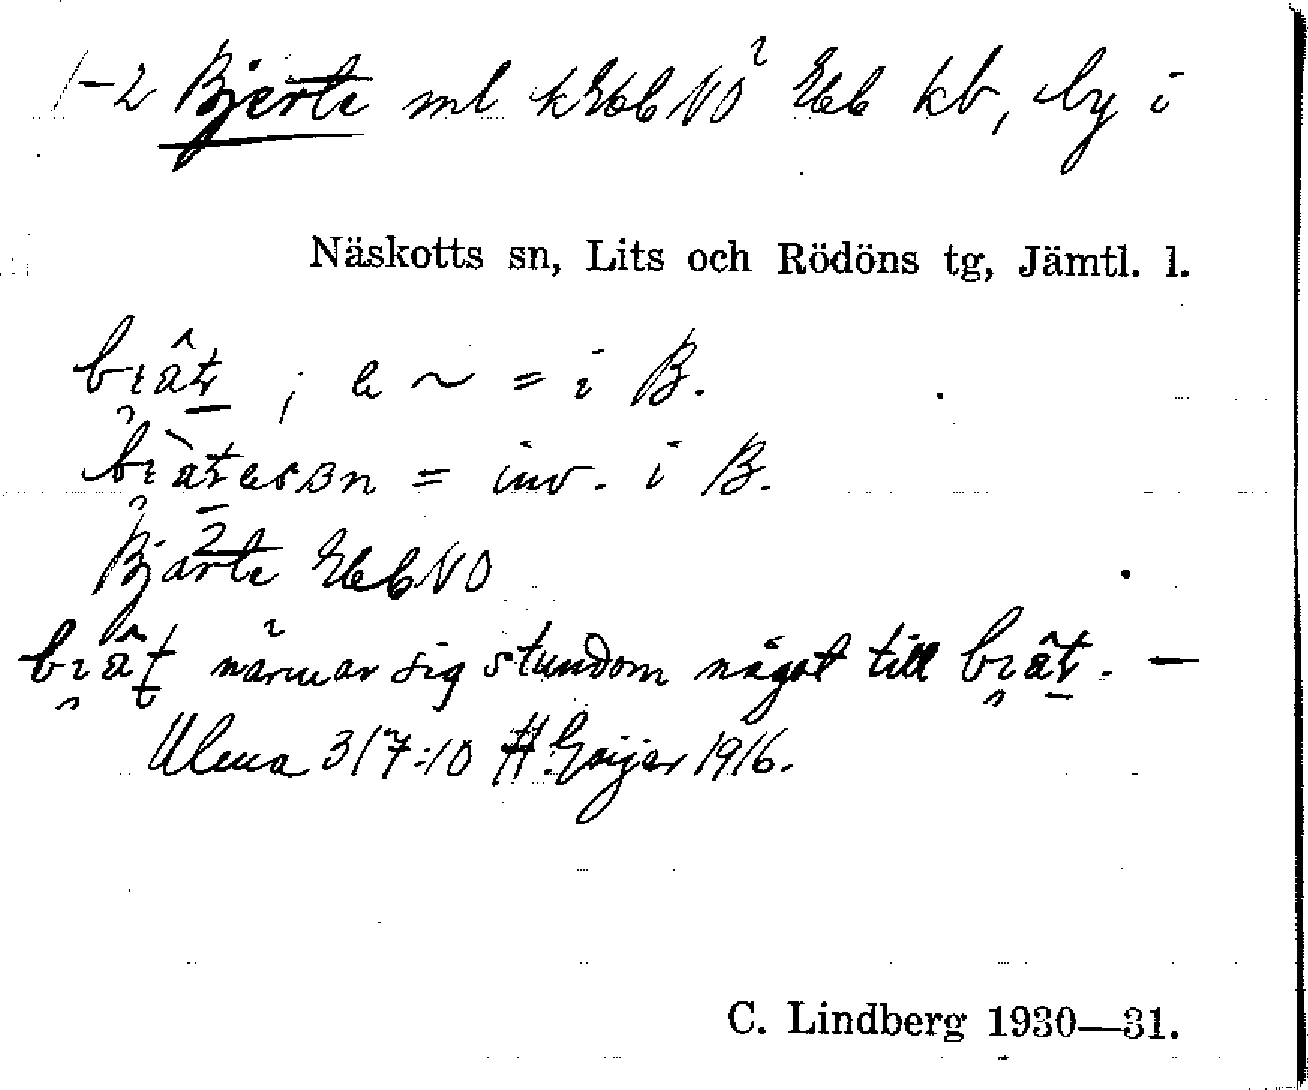 1-2 Bjärte ml kEbbNO² Ebb kb, by i
Näskotts sn, Lits och Rödöns tg, Jämtl. l.
; a ~ = i B.
= inv. i B.
Bjärte EbbNO
närmar sig stundom något till . —
Ulma 317:10 H. Geijer 1916.
C. Lindberg 1930—31.